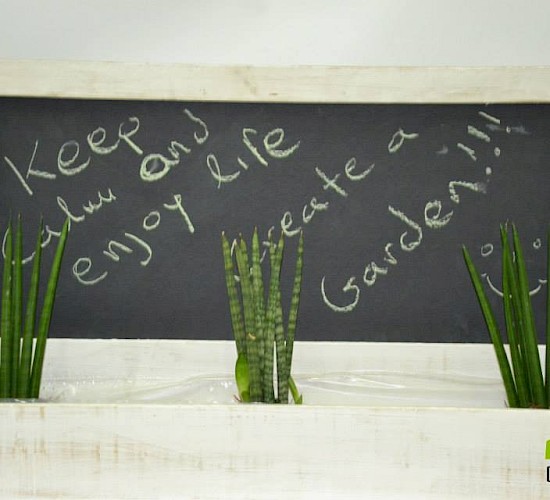 Keep
Calm and
enjoy life
create a
Garden!!!